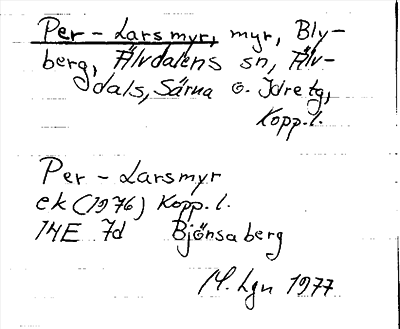 Per - Larsmyr, myr, Bly-
berg, Älvdalens sn, Älv-
dals, Särna o. Idre tg,
Kopp.l.
Per - Larsmyr
ek (1976) Kopp.l.
14E 7d Björnsaberg
M. Lgn 1977